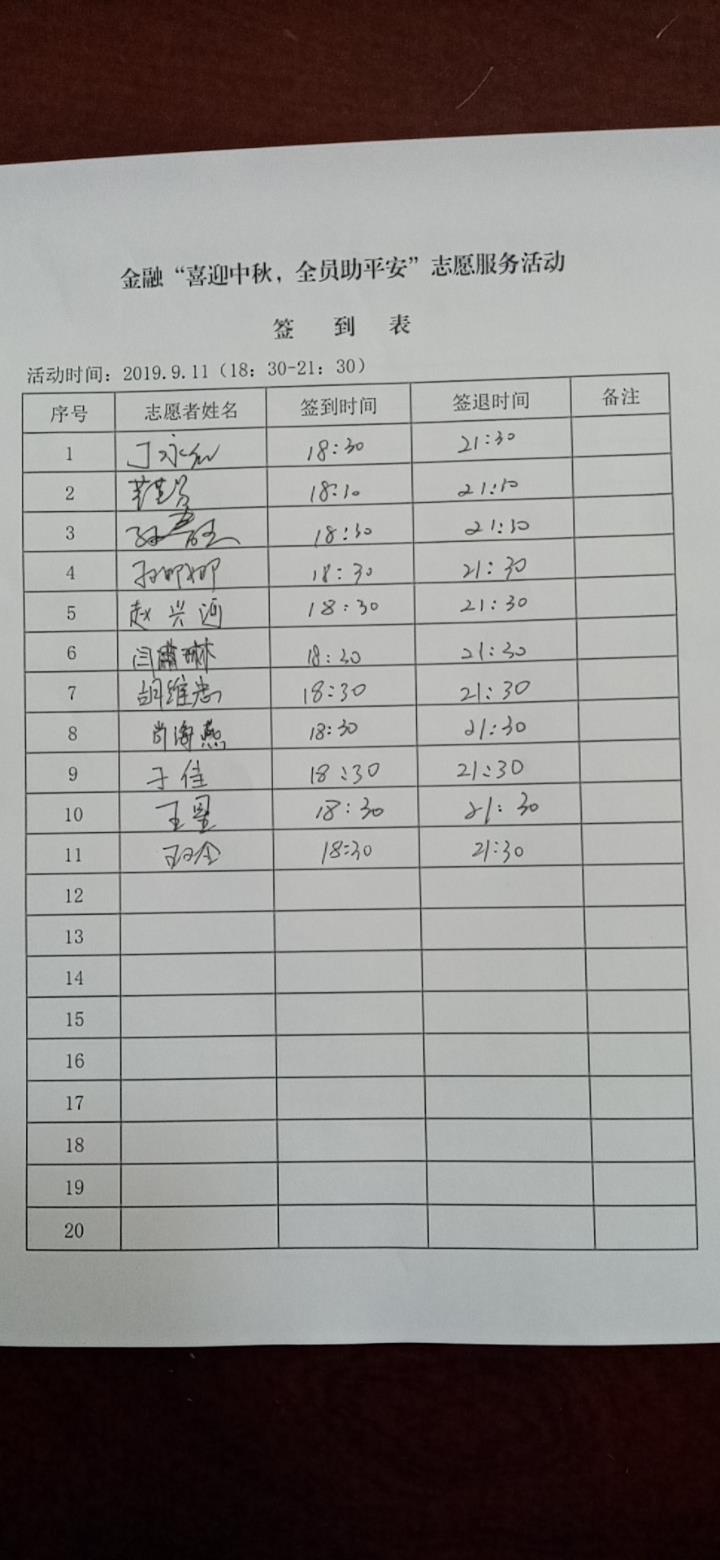 金融“喜迎中秋，全员助平安”志愿服务活动
签 到 表
活动时间：2019.9.11（18：30-21：30）
序号 志愿者姓名 签到时间 签退时间 备注
1 18:30 21:30
2
3 18:30 21:30
4 18:30 21:30
5 赵兴河 18:30 21:30
6 闫肃琳 18:30 21:30
7 胡维忠 18:30 21:30
8 肖海燕 18:30 21:30
9 于佳 18:30 21:30
10 王星 18:30 21:30
11 18:30 21:30
12
13
14
15
16
17
18
19
20